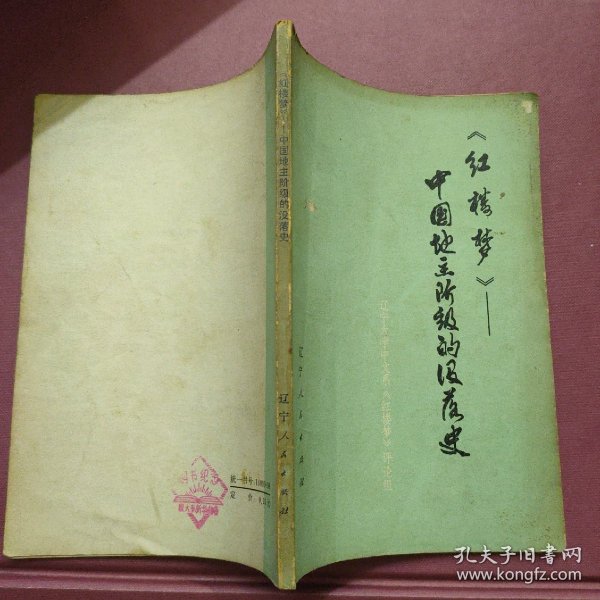 《红楼梦》——
中国地主阶级的没落史
辽宁大学中文系《红楼梦》评论组
辽宁人民出版社
《红楼梦》——中国地主阶级的没落史
辽宁人民出版社
统一书号:
定价:
图书纪念
孔夫子旧书网
www.kongfz.com